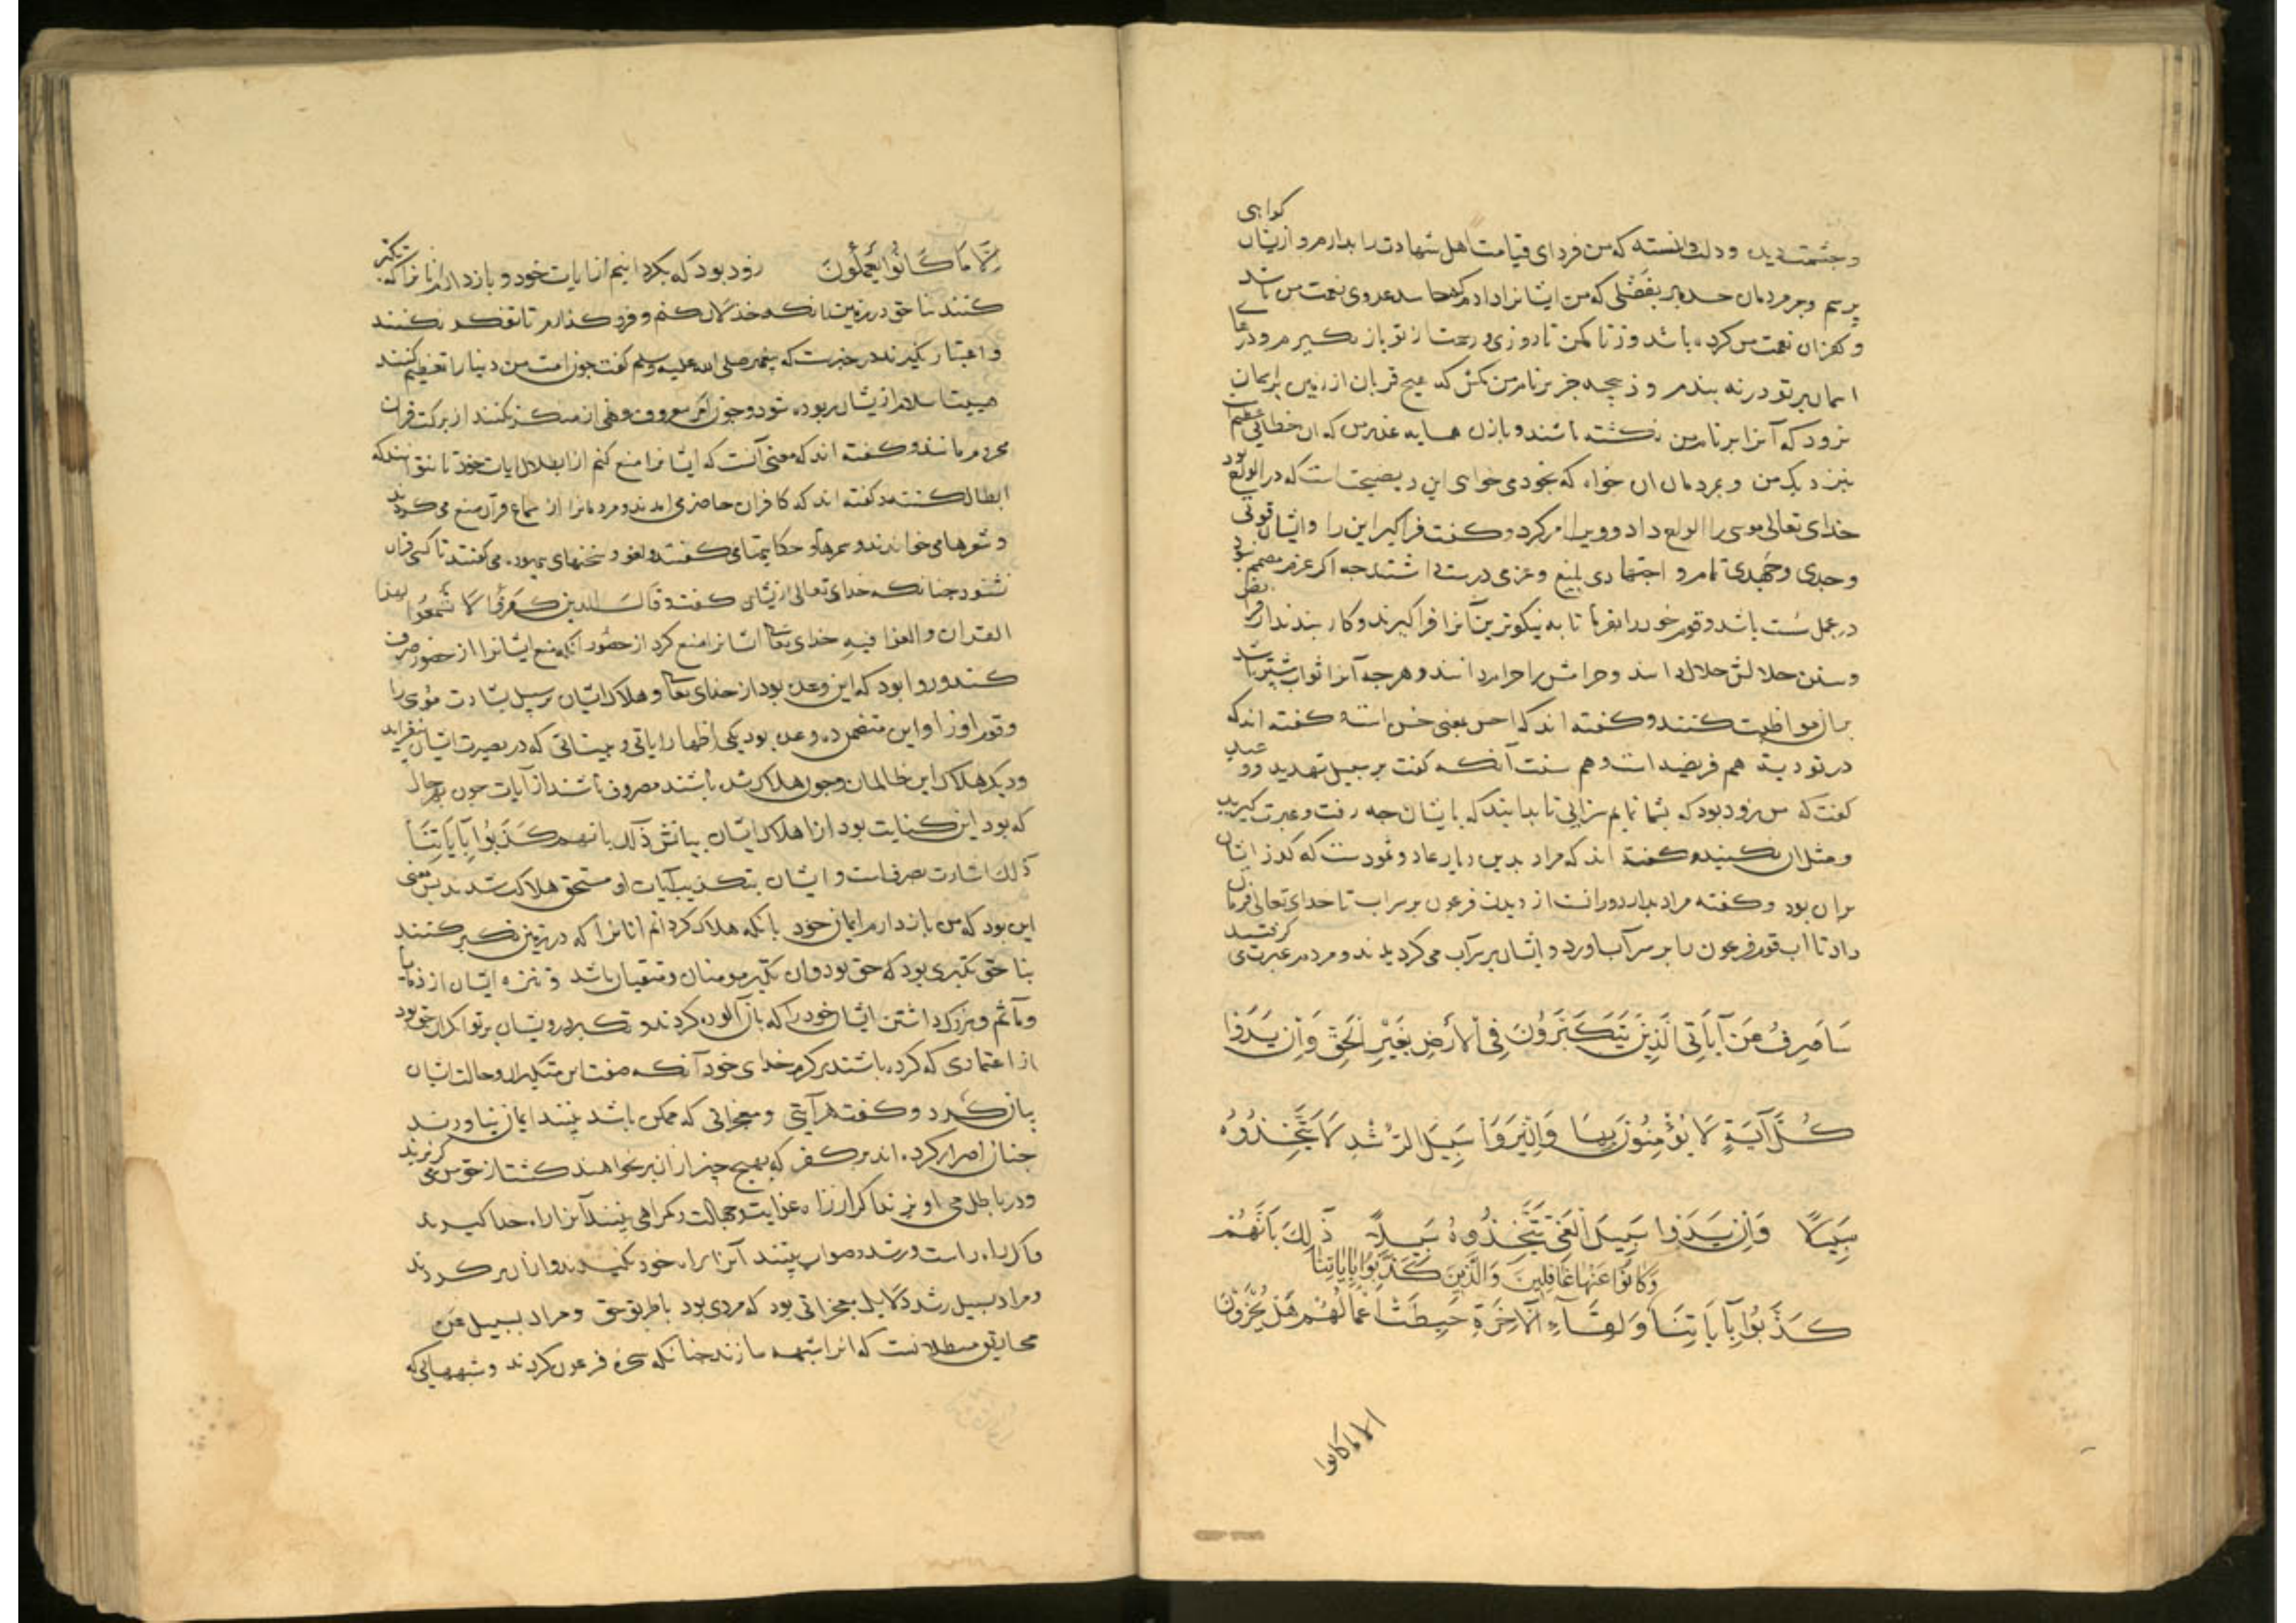 گواهی
و چشمت دیده و دلت دانسته که من فردای قیامت اهل شهادت را بدارم و ازیشان
پرسم و بر مردمان حسد مبر بفضلی که من ایشانرا دادم که حاسد عدوی نعمت من باشد
و کفران نعمت من کرده باشد و زنا مکن تا روزی و رحمت از تو باز نگیرم و درهای
اسمان بر تو درنه بندم و ذبیحه جز بر نام من مکش که هیچ قربان از زمین بر اسمان
نرود که آنرا بر نام من نکشته باشند و با زن همسایه غدر مرس که ان خطائی عظیم بود
بنزدیک من و بمردمان ان خواه که بخود می خواهی این ده نصیحت است که در الواح بود
خدای تعالی موسی را الواح داد و ویرا امر کرد و گفت فراگیر این را و ایشان قوتی
و جدی و جهدی تمام و اجتهادی بلیغ و عزمی درست داشتند چه اگر عزم مصمم نبود
در عمل سست باشد و قوم خود را بفرما تا به نیکوترین آنرا فرا گیرند و کار بندند از فرایض
و سنن حلالش حلال دانند و حرامش را حرام دانند و هرچه آنرا ثواب بیشتر باشد
بران مواظبت کنند و گفته اند که احسن بمعنی حسن است و گفته اند که
در توریة هم فریضه است و هم سنت آنگه گفت بر سبیل تهدید و وعید
گفت که من زود بود که بشما نمایم سرایی تا بدانید که بایشان چه رفت و عبرت گیرید
و مثل ان نکنید و گفته اند که مراد بدین دیار عاد و ثمودست که گذر ایشان
بران بود و گفته مراد بدار دورانست از دیدن فرعون بر سر اب تا خدای تعالی فرمان
داد تا اب قوم فرعون را بر سر آب اورد و ایشان بر سر آب می گردیدند و مردم عبرت می گرفتند
سَأَصْرِفُ عَنْ آيَاتِيَ الَّذِينَ يَتَكَبَّرُونَ فِي الْأَرْضِ بِغَيْرِ الْحَقِّ وَإِنْ يَرَوْا
كُلَّ آيَةٍ لَا يُؤْمِنُوا بِهَا وَإِنْ يَرَوْا سَبِيلَ الرُّشْدِ لَا يَتَّخِذُوهُ
سَبِيلًا وَإِنْ يَرَوْا سَبِيلَ الْغَيِّ يَتَّخِذُوهُ سَبِيلًا ذَلِكَ بِأَنَّهُمْ
وَكَانُوا عَنْهَا غَافِلِينَ وَالَّذِينَ كَذَّبُوا بِآيَاتِنَا
كَذَّبُوا بِآيَاتِنَا وَلِقَاءِ الْآخِرَةِ حَبِطَتْ أَعْمَالُهُمْ هَلْ يُجْزَوْنَ
الا ما کانوا
إِلَّا مَا كَانُوا يَعْمَلُونَ زود بود که بگردانیم از ایات خود و بازدارم انانرا که تکبر
کنند بناحق در زمین بدانکه خذلان کنم و فرو گذارم تا تفکر نکنند
و اعتبار نگیرند در خبرست که پیغمبر صلی الله علیه وسلم گفت چون امت من دنیا را تعظیم کنند
هیبت اسلام ازیشان ربوده شود و چون امر معروف و نهی از منکر نکنند از برکت قران
محروم مانند و گفته اند که معنی آنست که ایشانرا منع کنم از ابطال ایات خود تا نتوانند که
ابطال کنند و گفته اند که کافران حاضر می امدند و مردمانرا از سماع قرآن منع می کردند
و شعرها می خواندند و سمرها و حکایتهای گفتند و لغو و سخنهای بیهوده می گفتند تا کسی قران
نشنود چنانکه خدای تعالی ازیشان گفت و قال الذین کفروا لا تسمعوا لهذا
القران والغوا فیه خدای تعالی ایشانرا منع کرد از حضور آنکه منع ایشانرا از حضور صرف
کند و روا بود که این وعده بود از خدای تعالی و هلاک ایشان بر سبیل بشارت موسی را
و قوم اورا و این متضمن دو وعده بود یکی اظهار ایاتی و بیناتی که در بصیرت ایشان بیفزاید
و دیگر هلاک این ظالمان و چون هلاک شده باشند مصروف باشند از آیات چون بهر حال
که بود این کنایت بود از اهلاک ایشان بیانش ذلک بانهم کَذَّبُوا بِآيَاتِنَا
ذلک اشارت بصرفست و ایشان بتکذیب آیات او مستحق هلاک شدند پس معنی
این بود که من بازدارم ایمان خود بانکه هلاک گردانم انانرا که در زمین تکبر کنند
بناحق تکبری بود که حق بود وان تکبر مومنان و متقیان باشد و تنزه ایشان از ذمایم
و مآثم و بزرگ داشتن ایشان خود را که بازآلوده گردند و تکبر درویشان بر توانگران حق بود
از اعتمادی که کرده باشند بر کرم خدای خود آنگه صفت این متکبران و حالت ایشان
بیان کرد و گفت هر آیتی و معجزاتی که ممکن باشد بینند ایمان نیاورند
چنان اصرار کرده اند بر کفر که بهیچ چیز از ان برنخواهند گشت از حق می گریزند
و در باطل می اویزند اگر از راه غوایت و جهالت و گمراهی بینند آنرا راه خود گیرند
و اگر راه راست و رشد و صواب بینند آنرا راه خود نگیرند و از ان برگردند
و مراد بسبیل رشد دلایل و معجزاتی بود که مردی بود با طریق حق و مراد بسبیل غی
مخاریق مبطلانست که انرا شبهه سازند چنانکه سحره فرعون کردند و شبههایی که